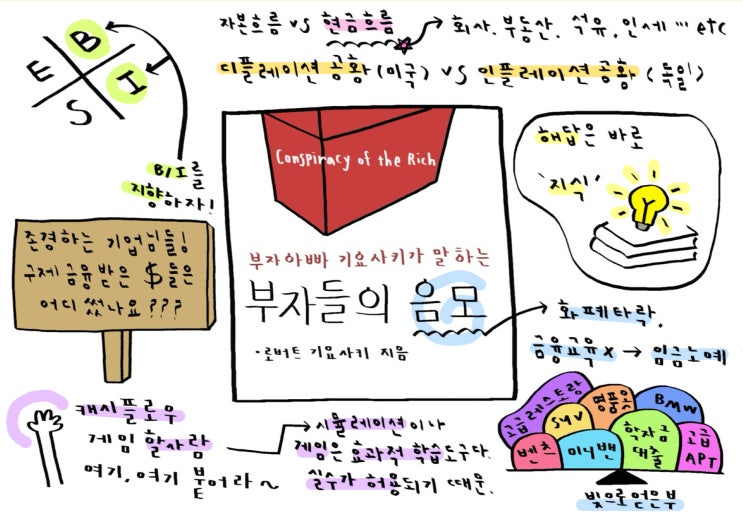 자본흐름 vs 현금흐름 → 회사. 부동산. 석유, 인세 … etc
디플레이션 공황 (미국) vs 인플레이션 공황 (독일)
E B
S I
B/I를
지향하자!
Conspiracy of the Rich
부자아빠 기요사키가 말하는
부자들의 음모
·로버트 기요사키 지음
해답은 바로
'지식'
존경하는 기업님들!
구제금융받은 $들은
어디 썼나요???
화폐타락.
금융교육X → 임금노예
캐시플로우
게임 할사람
여기, 여기 붙어라~
시뮬레이션이나
게임은 효과적 학습도구다.
실수가 허용되기 때문.
고급레스토랑
SUV
명품옷
BMW
벤츠
미니밴
학자금
대출
고급
APT
빚으로얻은부